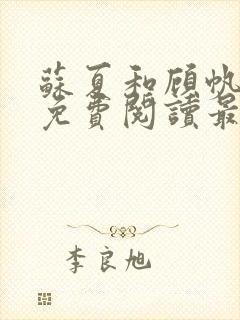 蘇夏和顧帆
免費閱讀最
李良旭